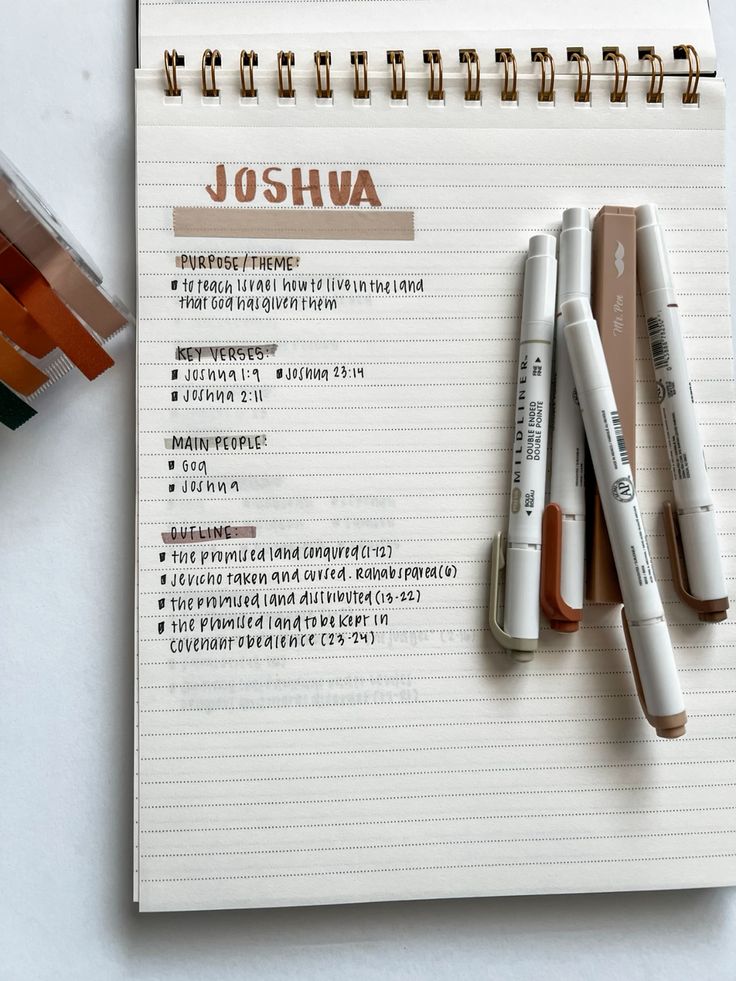 JOSHUA
PURPOSE/THEME:
to teach Israel how to live in the land
that God has given them
KEY VERSES:
Joshua 1:9 Joshua 23:14
Joshua 2:11
MAIN PEOPLE:
God
Joshua
OUTLINE:
the promised land conqured (1-12)
Jericho taken and cursed. Rahab spared (6)
the promised land distributed (13-22)
the promised land to be kept in
covenant obedience (23-24)
MILDLINER
DOUBLE ENDED
DOUBLE POINTE
FINE
FINE
BOLD
BISEAU
Mr. Pen
AP